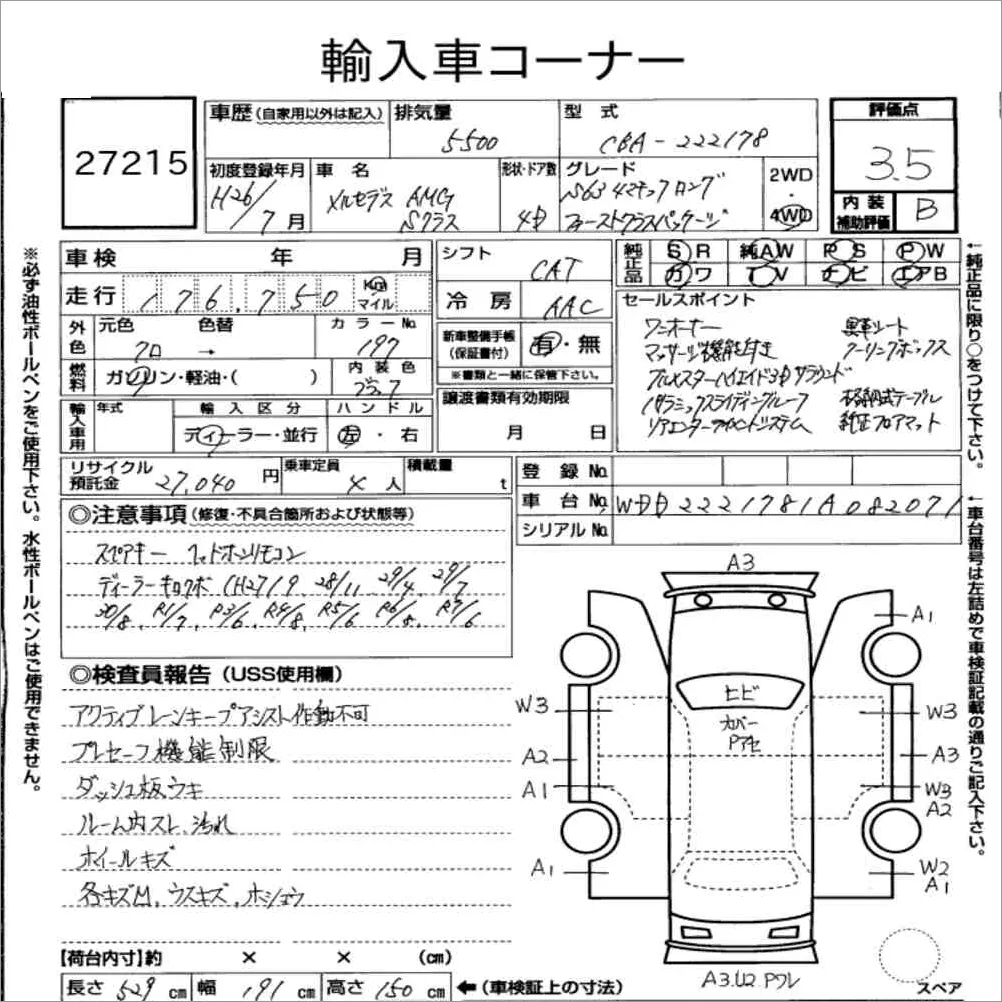 輸入車コーナー
27215
車歴 (自家用以外は記入) 排気量 5500 型式 CBA-222178
評価点 3.5
内装補助評価 B
初度登録年月 H26/7月 車名 メルセデス AMG Sクラス 形状・ドア数 4D グレード S63 4マチック ロング ファーストクラスパッケージ 2WD 4WD
車検 年 月
シフト CAT
純正品 SR 純AW PS PW
カワ TV ナビ エアB
走行 176,750 Km マイル
冷房 AAC
外色 元色 クロ 色替 → カラーNo. 197
新車整備手帳(保証書付) 有・無
※書類と一緒に保管下さい。
燃料 ガソリン・軽油・( ) 内装色 ブラック
譲渡書類有効期限 月 日
輸入車用 年式 輸入区分 ディーラー・並行 ハンドル 左・右
セールスポイント
ワンオーナー 黒革シート
マッサージ機能付き クーリングボックス
ブルメスターハイエンド3Dサラウンド
パノラミックスライディングルーフ 格納式テーブル
リアエンターテイメントシステム 純正フロアマット
リサイクル預託金 27,040円 乗車定員 4人 積載量 t
登録No.
車台No. WDD2221781A082071
シリアルNo.
◎注意事項 (修復・不具合箇所および状態等)
スペアキー ヘッドホンリモコン
ディーラーキロクボ (H27/9, 28/11, 29/4, 29/7
30/8, R1/7, R3/6, R4/8, R5/6, R6/8, R7/6
◎検査員報告 (USS使用欄)
アクティブレーンキープアシスト作動不可
プレセーフ機能制限
ダッシュ板ウキ
ルーム内スレ、汚れ
ホイールキズ
各キズM、ウスキズ、ホシュウ
【荷台内寸】約 × × (cm)
長さ 529 cm 幅 191 cm 高さ 150 cm ←(車検証上の寸法)
A3
A1
ヒビ
カバー
Pアセ
W3
W3
A2
A3
A1
W3
A2
A1
W2
A1
A3.U2 Pワレ
スペア
※必ず油性ボールペンをご使用下さい。水性ボールペンはご使用できません。
←純正品に限り○をつけて下さい。
←車台番号は左詰めで車検証記載の通りご記入下さい。